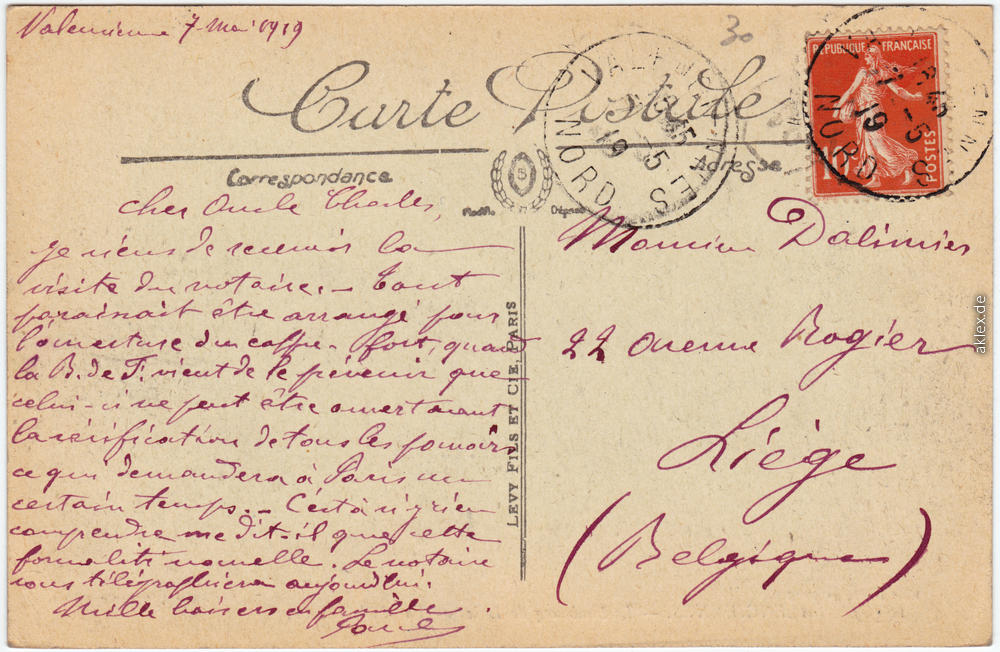 Valencienne 7-Mai 1919
30
Carte Postale
Correspondance
Adresse
RÉPUBLIQUE FRANÇAISE
10
POSTES
VALENCIENNES
NORD
7-5
19
Cher Oncle Charles,
je viens de recevoir la
visite du notaire. - Tout
paraissait être arrangé pour
l'ouverture du coffre-fort, quand
la B. de F. vient de le prévenir que
celui-ci ne peut être ouvert avant
la vérification de tous les pouvoirs
ce qui demandera à Paris un
certain temps. - C'est à n'y rien
comprendre me dit-il que cette
formalité nouvelle. Le notaire
vous télégraphiera aujourd'hui.
Mille baisers en famille.
LEVY FILS ET CIE, PARIS
Monsieur Dalimier
22 avenue Rogier
Liége
(Belgique)
aklex.de